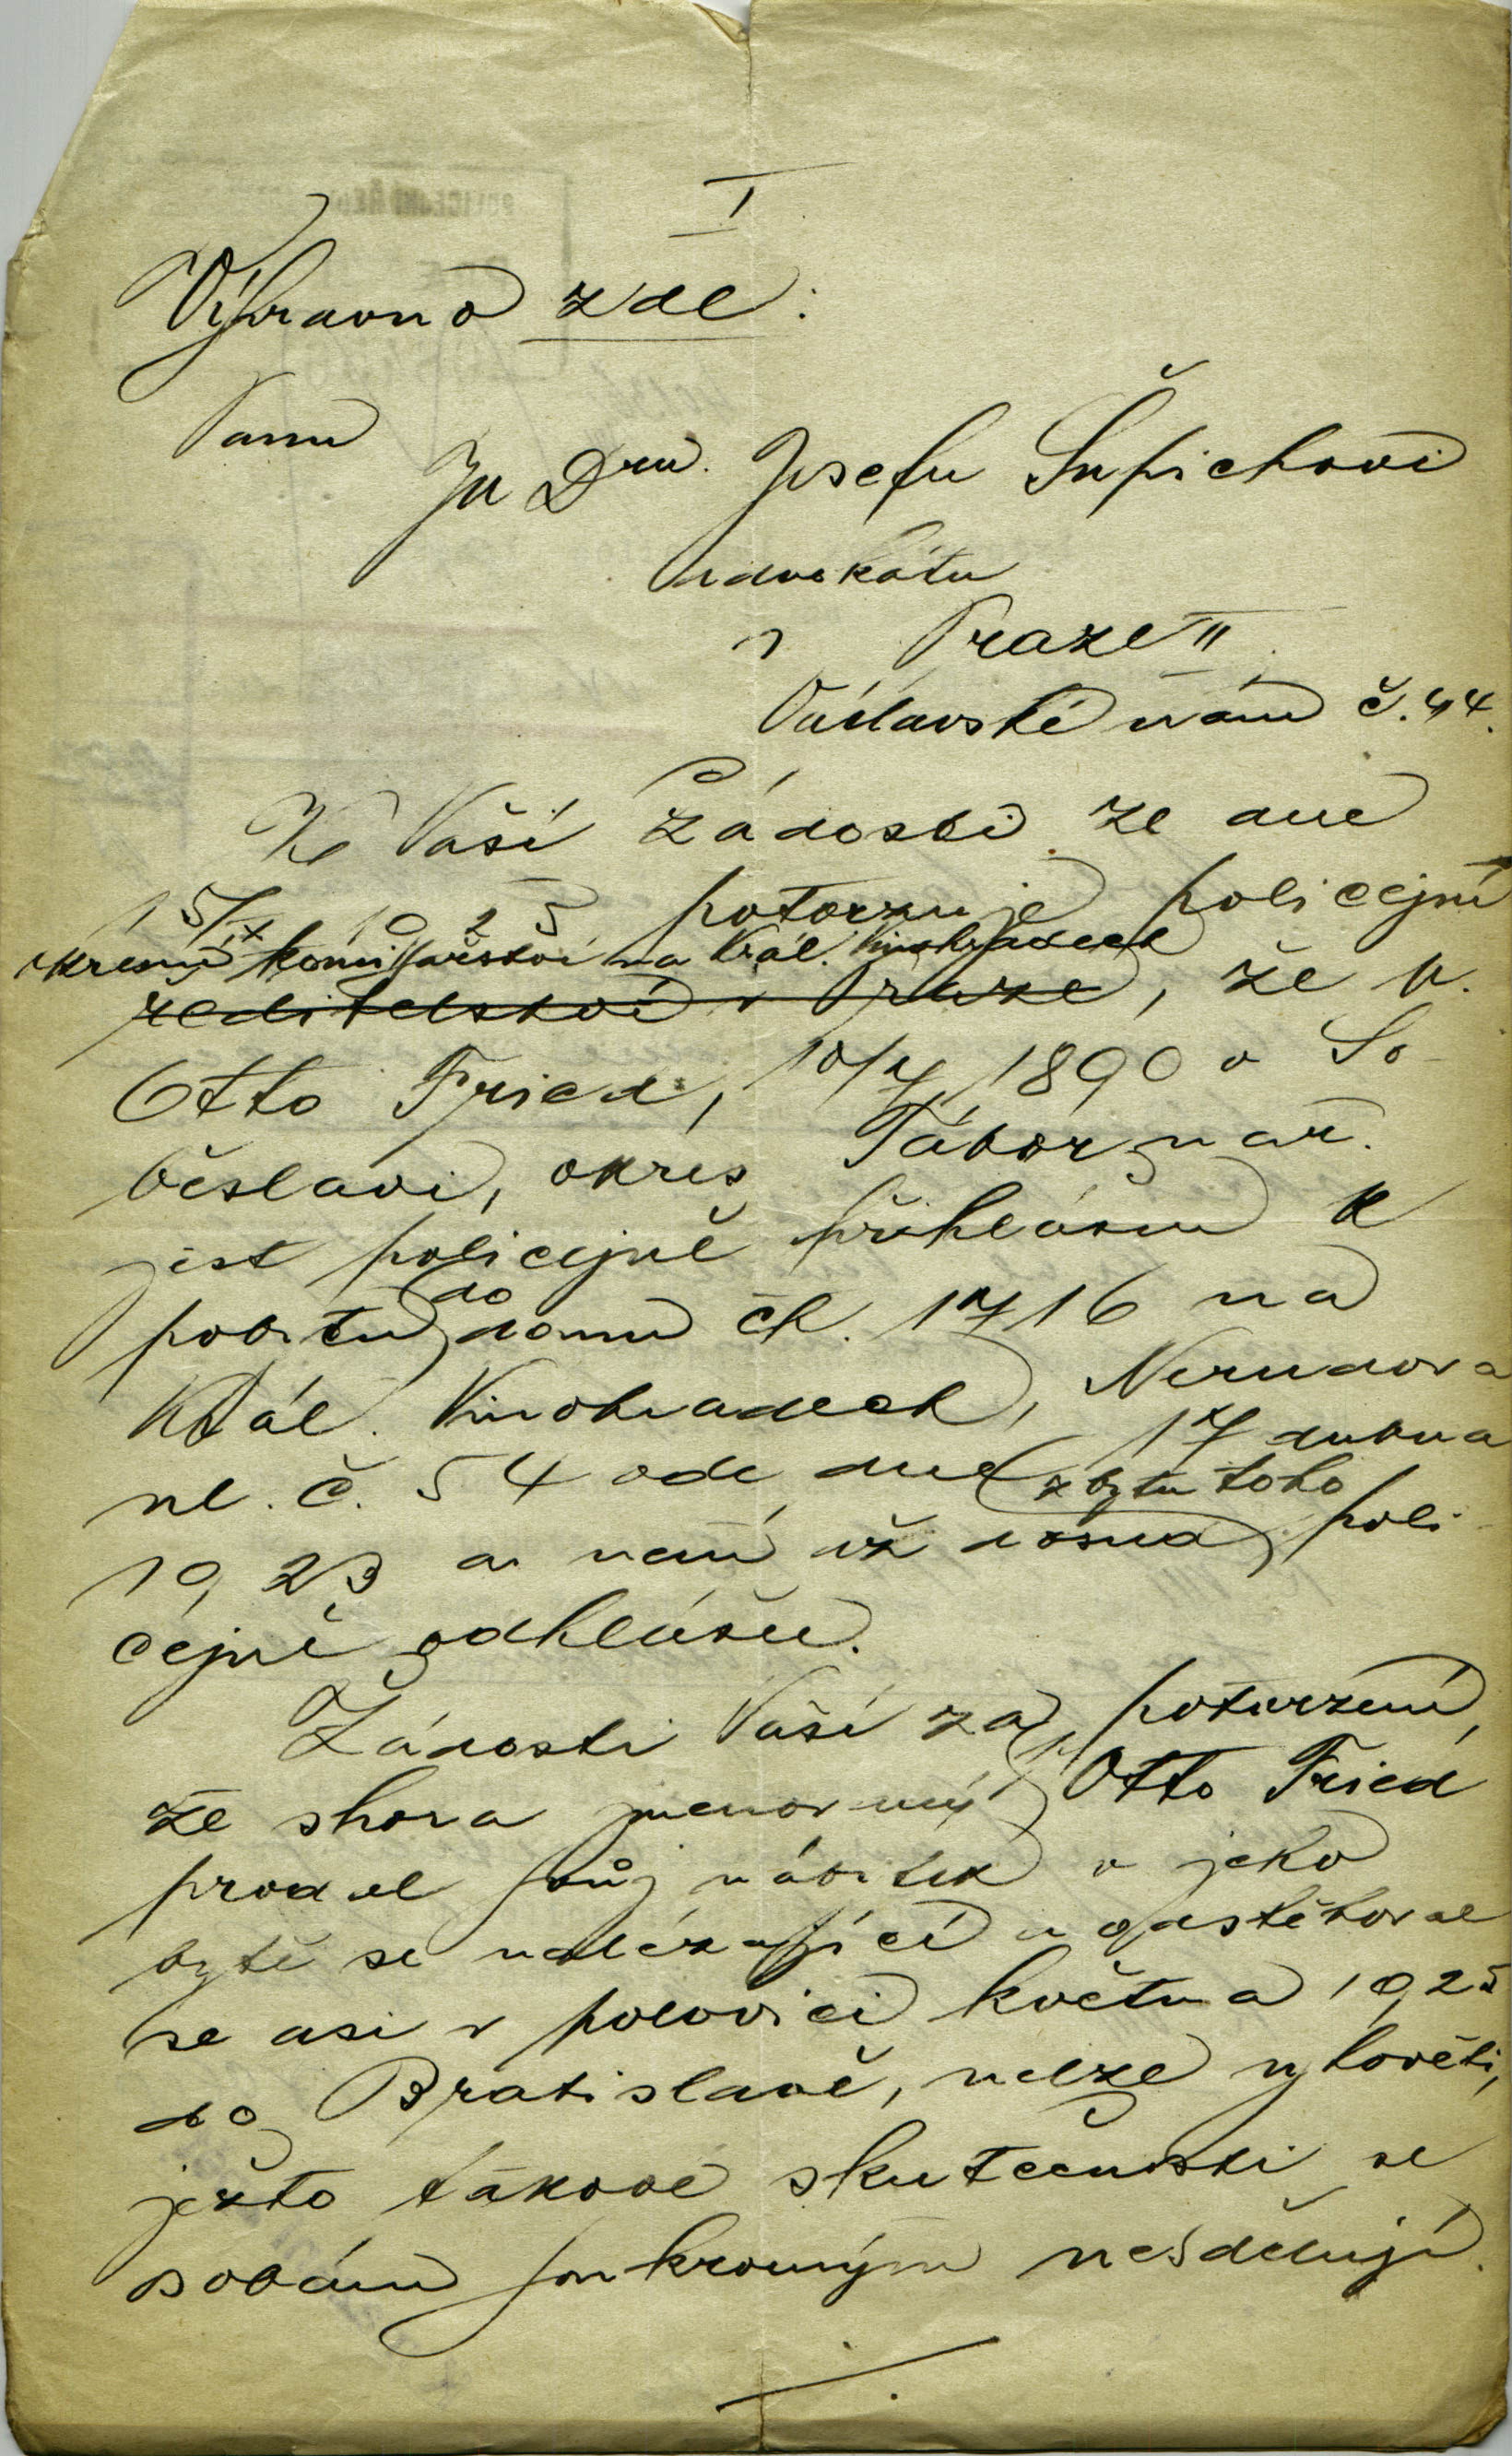 I
Výpravna zde:
Panu
Ju Dru. Josefu Šupichovi
advokátu
v Praze II
Václavské nám č. 44.
K Vaší žádosti ze dne
15/IX 1925 potvrzuje policejní
okresní komisařství na Král. Vinohradech
ředitelství v Praze, že p.
Otto Fried, 10/7 1890 v So-
běslavi, okres Tábor nar.
jest policejně přihlášen k
pobytu do domu čp. 1716 na
Král. Vinohradech, Nerudova
ul. č. 54 ode dne 17 dubna
1923 a není z bytu toho až dosud poli-
cejně odhlášen.
Žádosti Vaší za potvrzení,
že shora jmenovaný p. Otto Fried
prodal svůj nábytek v jeho
bytě se nalézající a odstěhoval
se asi v polovici května 1925
do Bratislavě, nelze vyhověti,
ježto takové skutečnosti se
osobám soukromým nesdělují.
./.